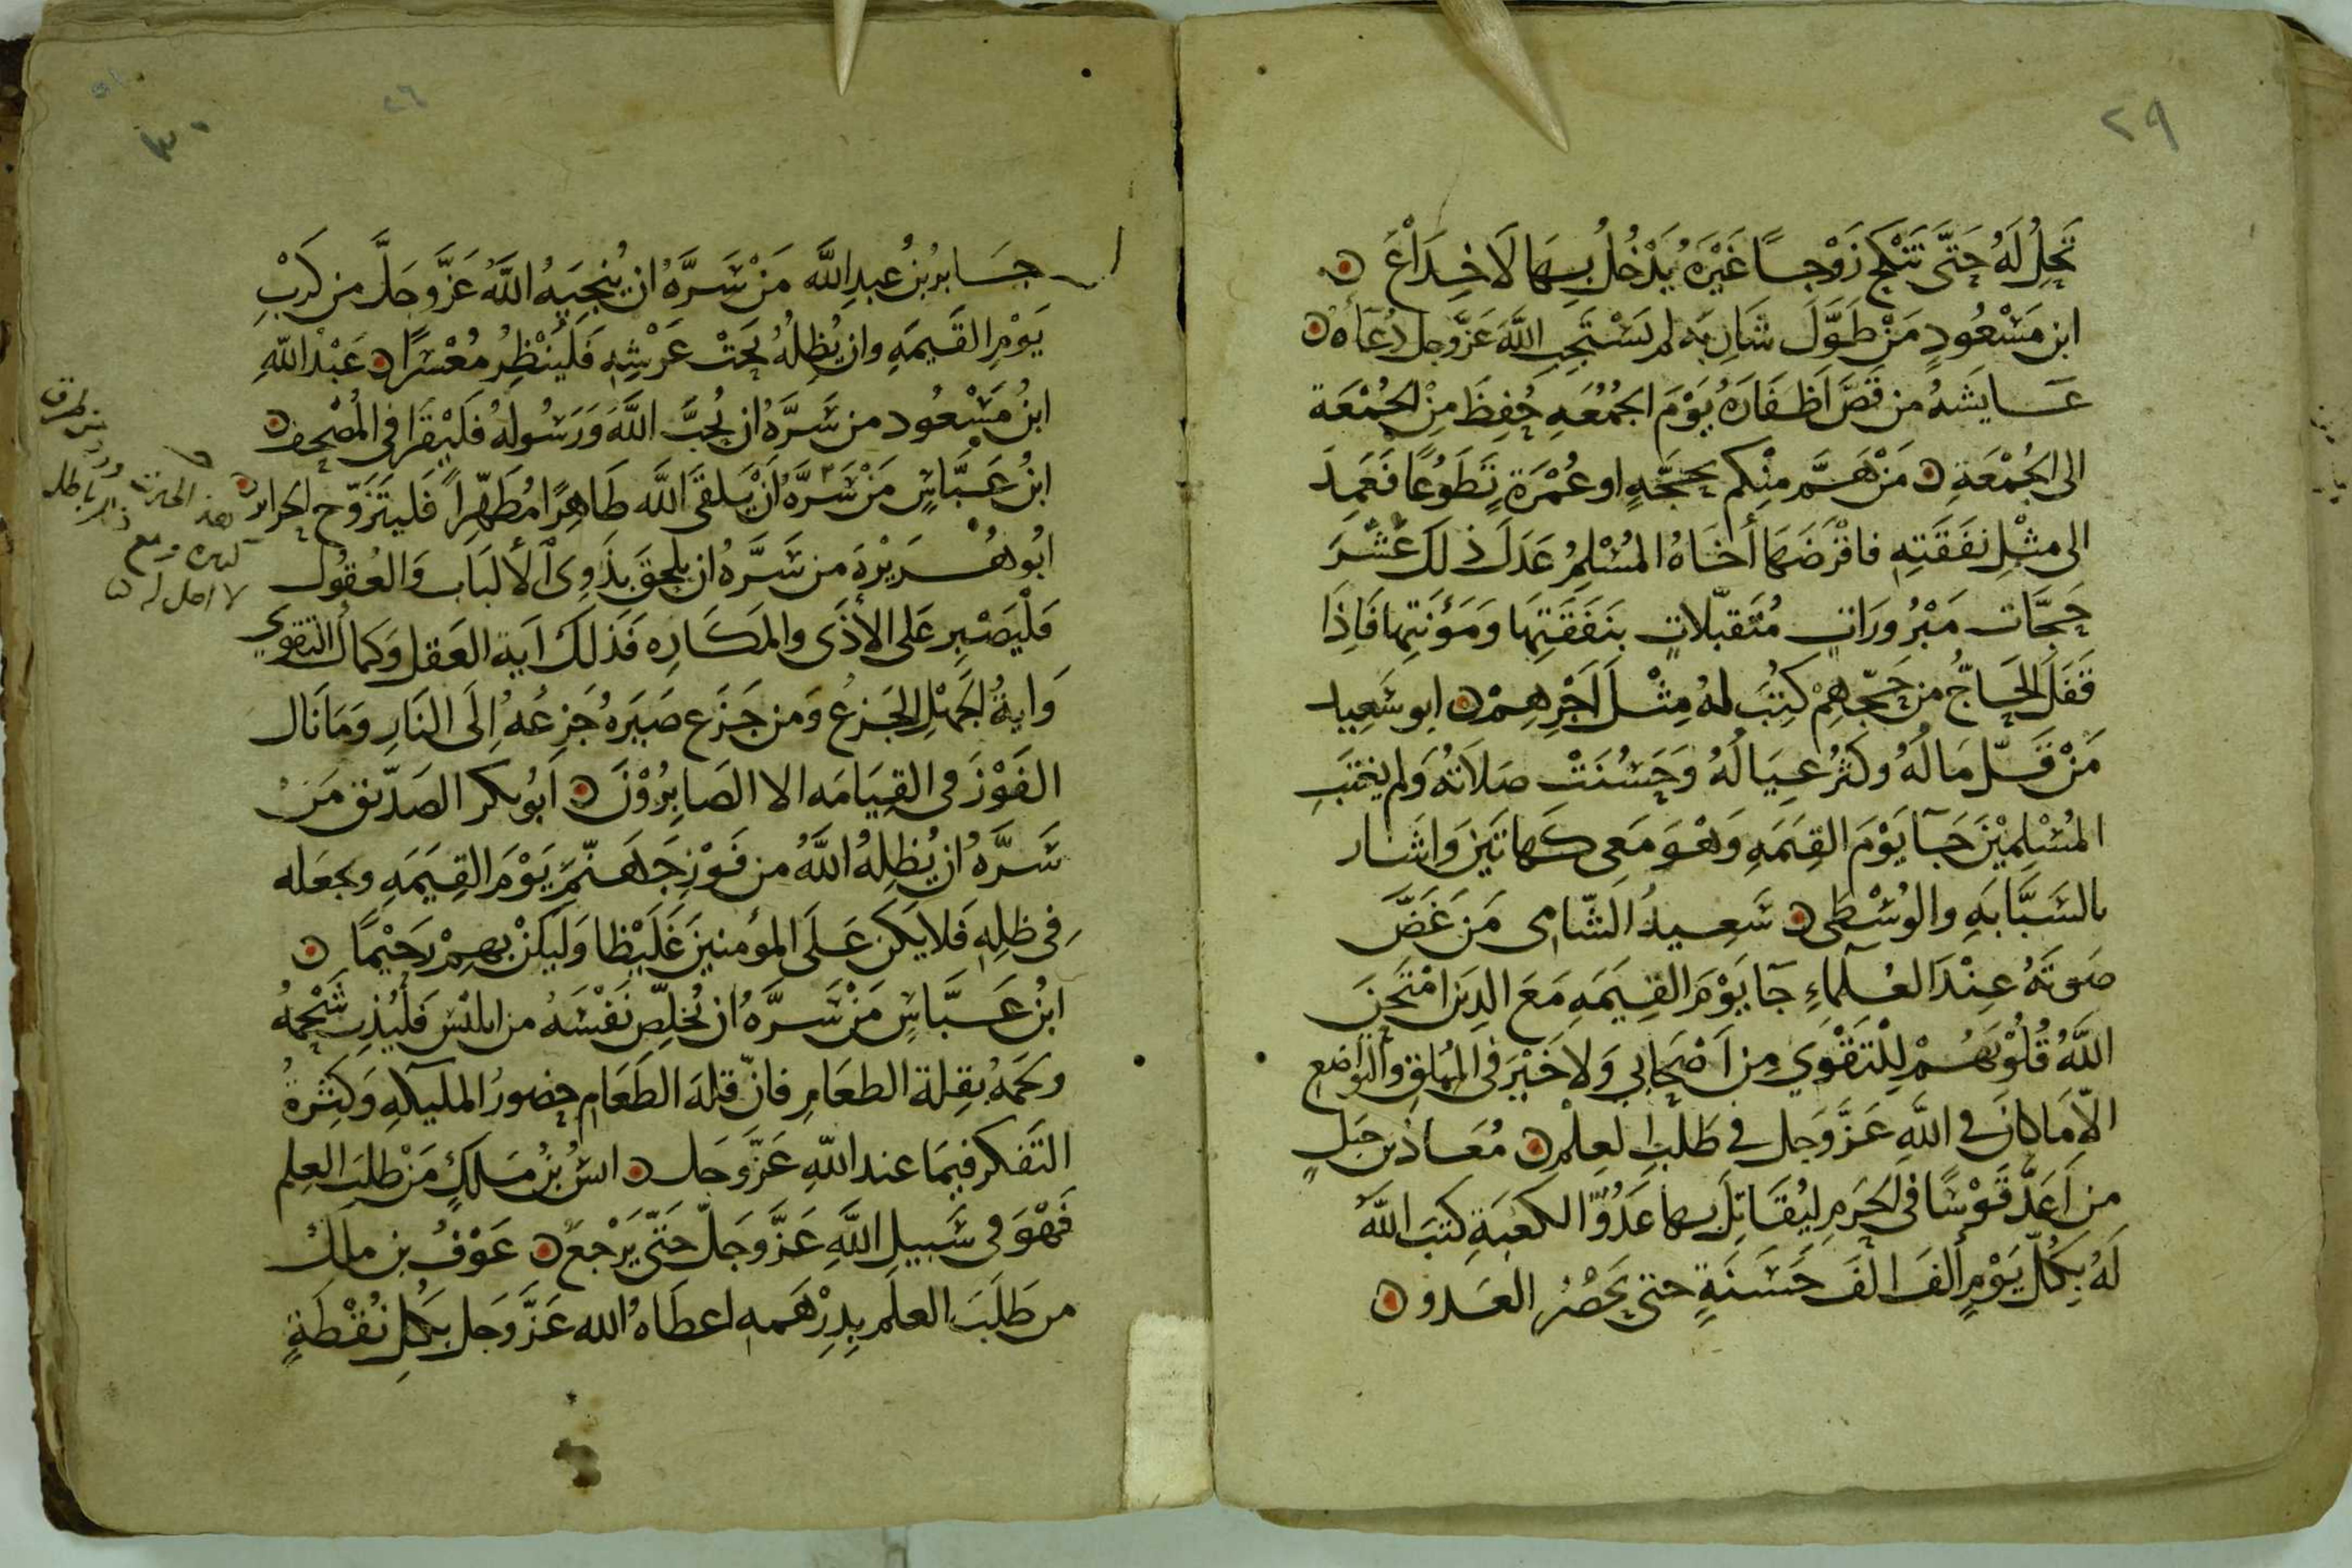 ٢٩
تَحِلُ لَهُ حَتَّى تَنْكِحَ زَوْجًا غَيْرَهُ يَدْخُلُ بِهَا لَا خِدَاعَ ن
ابن مَسْعُودٍ مَنْ طَوَّلَ شَارِبَه لم يَسْتَجِبِ اللَّهُ عَزَّ وجل دُعَآهُ ن
عَايشهُ من قَصَّ اَظفَارَهُ يَوْمَ الجُمُعَهِ حُفِظَ مِنْ الجُمْعَة
الى الجُمْعَةِ ن مَنْ هَمَّ مِنْكم بحَجَّهٍ او عُمْرَةٍ تَطَوُعًا فَعَمِدَ
الى مِثْلِ نفَقَتِهِ فاقْرَضَهَا أخَاهُ المُسْلِمُ عَدَلَ ذلَكَ عَشْرَ
حَجَّات مَبْرُورَاتٍ مُتَقَبَّلاتٍ بنَفَقَتِهَا وَمَؤُنَتِها فَاِذَا
قَفَلَ الحَاجُّ من حَجِّهِمْ كُتِبَ لهُ مِثْلَ اَجْرِهِمْ ن ابو سَعِيد
مَنْ قَلَّ مَالُهُ وكَثُرَ عِيَالُهُ وَحَسُنَتْ صَلَاتُهُ وَلم يغْتَبِ
المُسْلِمِيْنَ جَآ يَوْمَ القِيَمَهِ وَهْوَ مَعِى كَهَاتَيَنِ وَاشَار
بالسَبَّابَهِ والوُسْطَى ن سَعِيدُ الشّامى مَن غَضَّ
صَوتَهُ عِنْدَ العُلَمَآءِ جَآ يَوْمَ القِيَمَهِ مَعَ الذِينَ امْتَحَنَ
اللَّهُ قُلُوْبَهُمْ لِلْتَقْوَى مِن اَصْحَابِي وَلاَ خَيْرَ فى المُلقِ والتَوَاضعِ
الاَّ مَا كَانَ فى اللَّهِ عَزَّ وَجل فى طَلَبِ العِلْمِ ن مُعَاذُ بن جَبلٍ
من اَعَدَّ قَوْسًا فى الحَرَمِ لِيُقَاتِلَ بها عَدُوَّ الكَعْبَةِ كتبَ اللَّهُ
لَهُ بِكُلِّ يَوْمٍ أَلفَ اَلفَ حَسَنَةٍ حتى يَحْضُرَ العَدو ن
٣٠
٢٦
جَابرُ بنُ عبدِ اللَّه مَنْ سَرَّهُ ان يُنجِيَهُ اللَّهُ عَزَّ وجَلَّ من كَرْبِ
يَوْمِ القَيمَهِ وان يُظِلَهُ تحَتْ عَرْشِهِ فَلْيُنْظِرْ مُعْسَرًا ن عَبْدُ اللَّهِ
ابنُ مَسْعُود من سَرَّهُ ان يُحبَّ اللَّهَ وَرَسُولهُ فَلْيَقرَا فى المُصْحِف ن
ابنُ عَبَّاسٍ مَنْ سَرَّهُ اَنْ يَلقىَ اللَّه طَاهِرًا مُطَهّرًا فَليتَزَوّج الحراير ن
ابُو هُرَيْرةَ من سَرَّهُ ان يلحقَ بذَوِى الألبَابِ وَالعُقوُل
فَلْيَصْبِر عَلى الأذَى والمَكَارِه فَذلكَ اَية العَقل وَكمَالُ التقوى
وَايةُ الجَهْلِ الجَزعُ وَمن جَزَع صَيَرَهُ جَزعُهُ اِلَى النَارِ وَمَا نَال
الفَوْزَ فى القِيَامَه الا الصَابِرُوْنَ ن ابُو بكر الصَدّيق مَنْ
سَرَّهُ ان يُظِلهُ اللَّهُ من فَوْرِ جَهَنَّمَ يَوْمَ القِيَمَهِ ويجعَله
فِى ظِلِهِ فَلا يَكن عَلَى المؤمنينَ غَلَيْظا وَليَكنْ بهِمْ رَحَيْمًا ن
ابنُ عَبَّاسٍ مَنْ سَرَّهُ ان يُخلِصَ نَفْسَهُ من ابليْس فَليُذِب شَحْمهُ
ولحَمهُ بقِلة الطعَامِ فانّ قلهَ الطَعَام حضورُ المليكهِ وَكثرةُ
التَفكر فيمَا عند اللَّهِ عَزَّ وَجَل ن انسُ بنُ مَلكٍ مَنْ طلَبَ العِلم
فَهْوَ فى سَبيلِ اللَّهِ عَزَّ وَجَلّ حَتَّى يَرْجعَ ن عَوْفُ بن مالك
من طَلَبَ العلمَ بدِرْهَمهِ اعطَاهُ الله عَزَّ وَجل بكلِ نُقْطَةٍ
لا اصل له